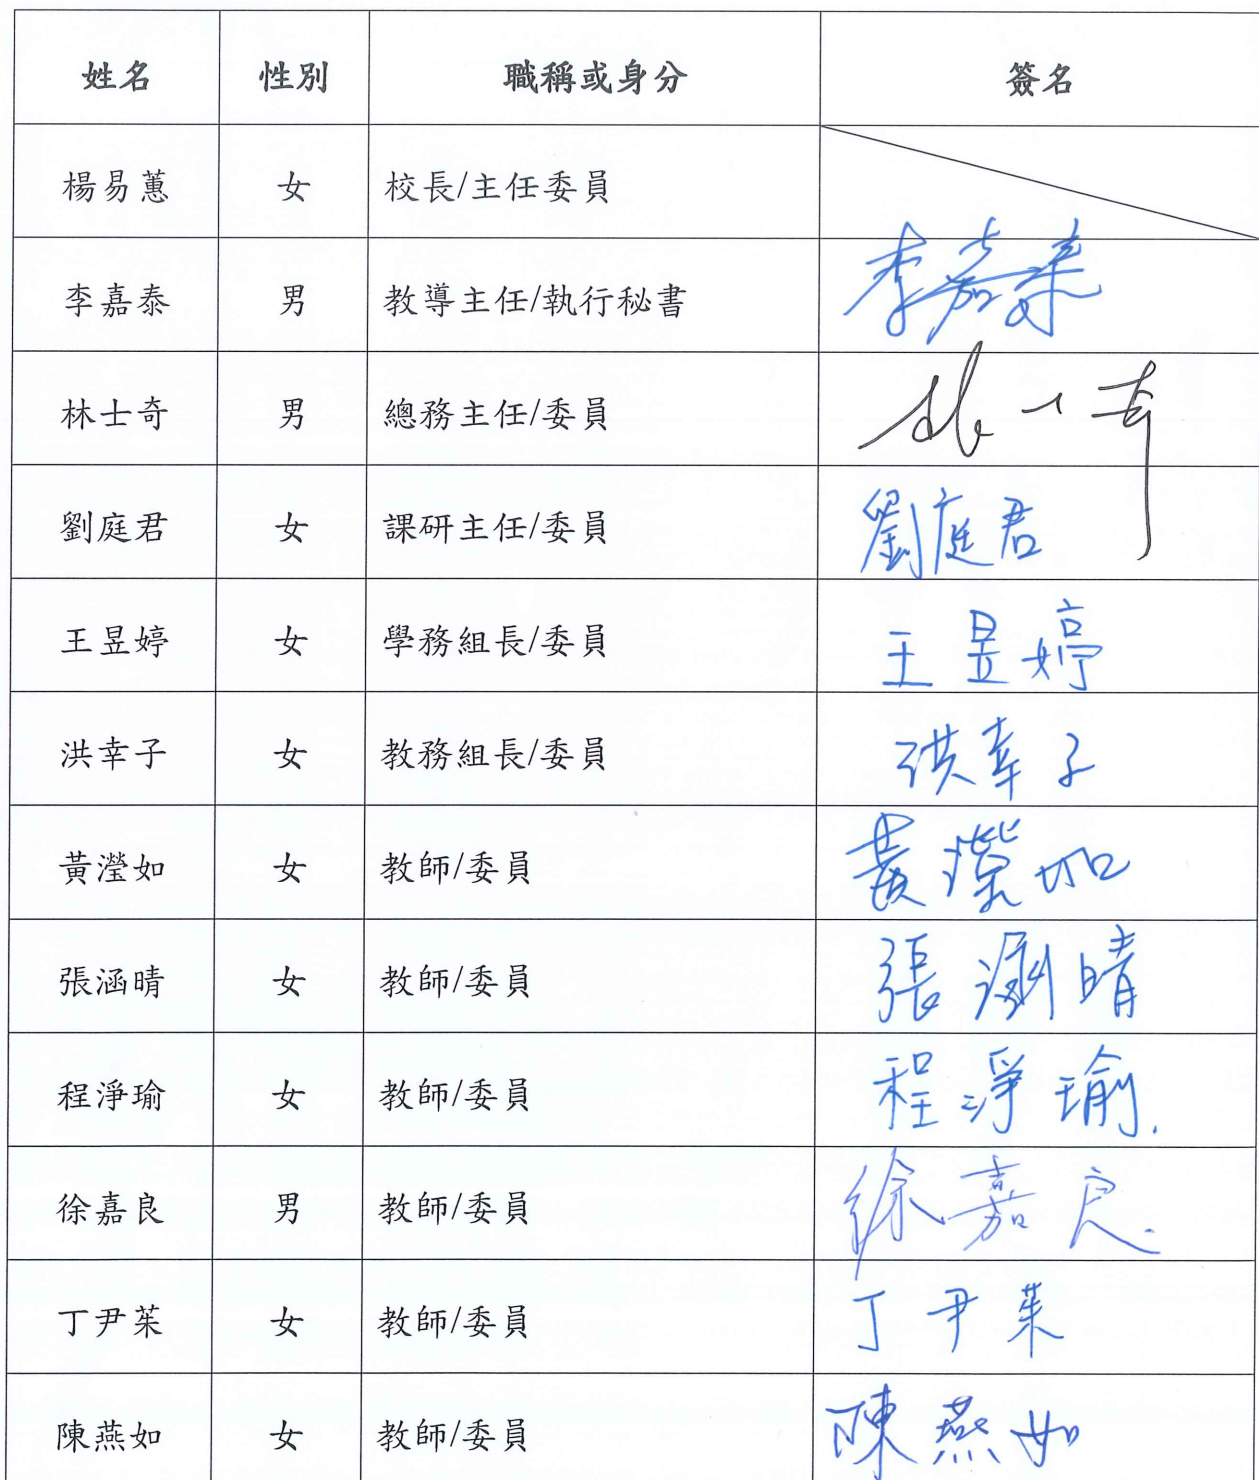 姓名 性別 職稱或身分 簽名
楊易蕙 女 校長/主任委員
李嘉泰 男 教導主任/執行秘書 李嘉泰
林士奇 男 總務主任/委員 林士奇
劉庭君 女 課研主任/委員 劉庭君
王昱婷 女 學務組長/委員 王昱婷
洪幸子 女 教務組長/委員 洪幸子
黃瀅如 女 教師/委員 黃瀅如
張涵晴 女 教師/委員 張涵晴
程淨瑜 女 教師/委員 程淨瑜.
徐嘉良 男 教師/委員 徐嘉良.
丁尹茱 女 教師/委員 丁尹茱
陳燕如 女 教師/委員 陳燕如